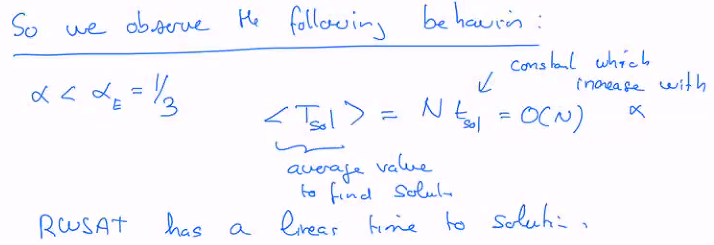 So we observe the following behavior :
constant which
increase with
α
α < α_E = 1/3
<T_sol> = N t_sol = O(N)
average value
to find solut.
RWSAT has a linear time to solution.